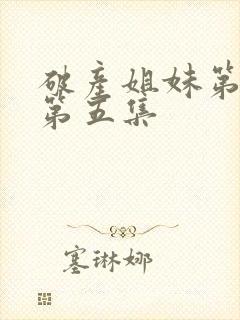 破产姐妹第
第五集
塞琳娜